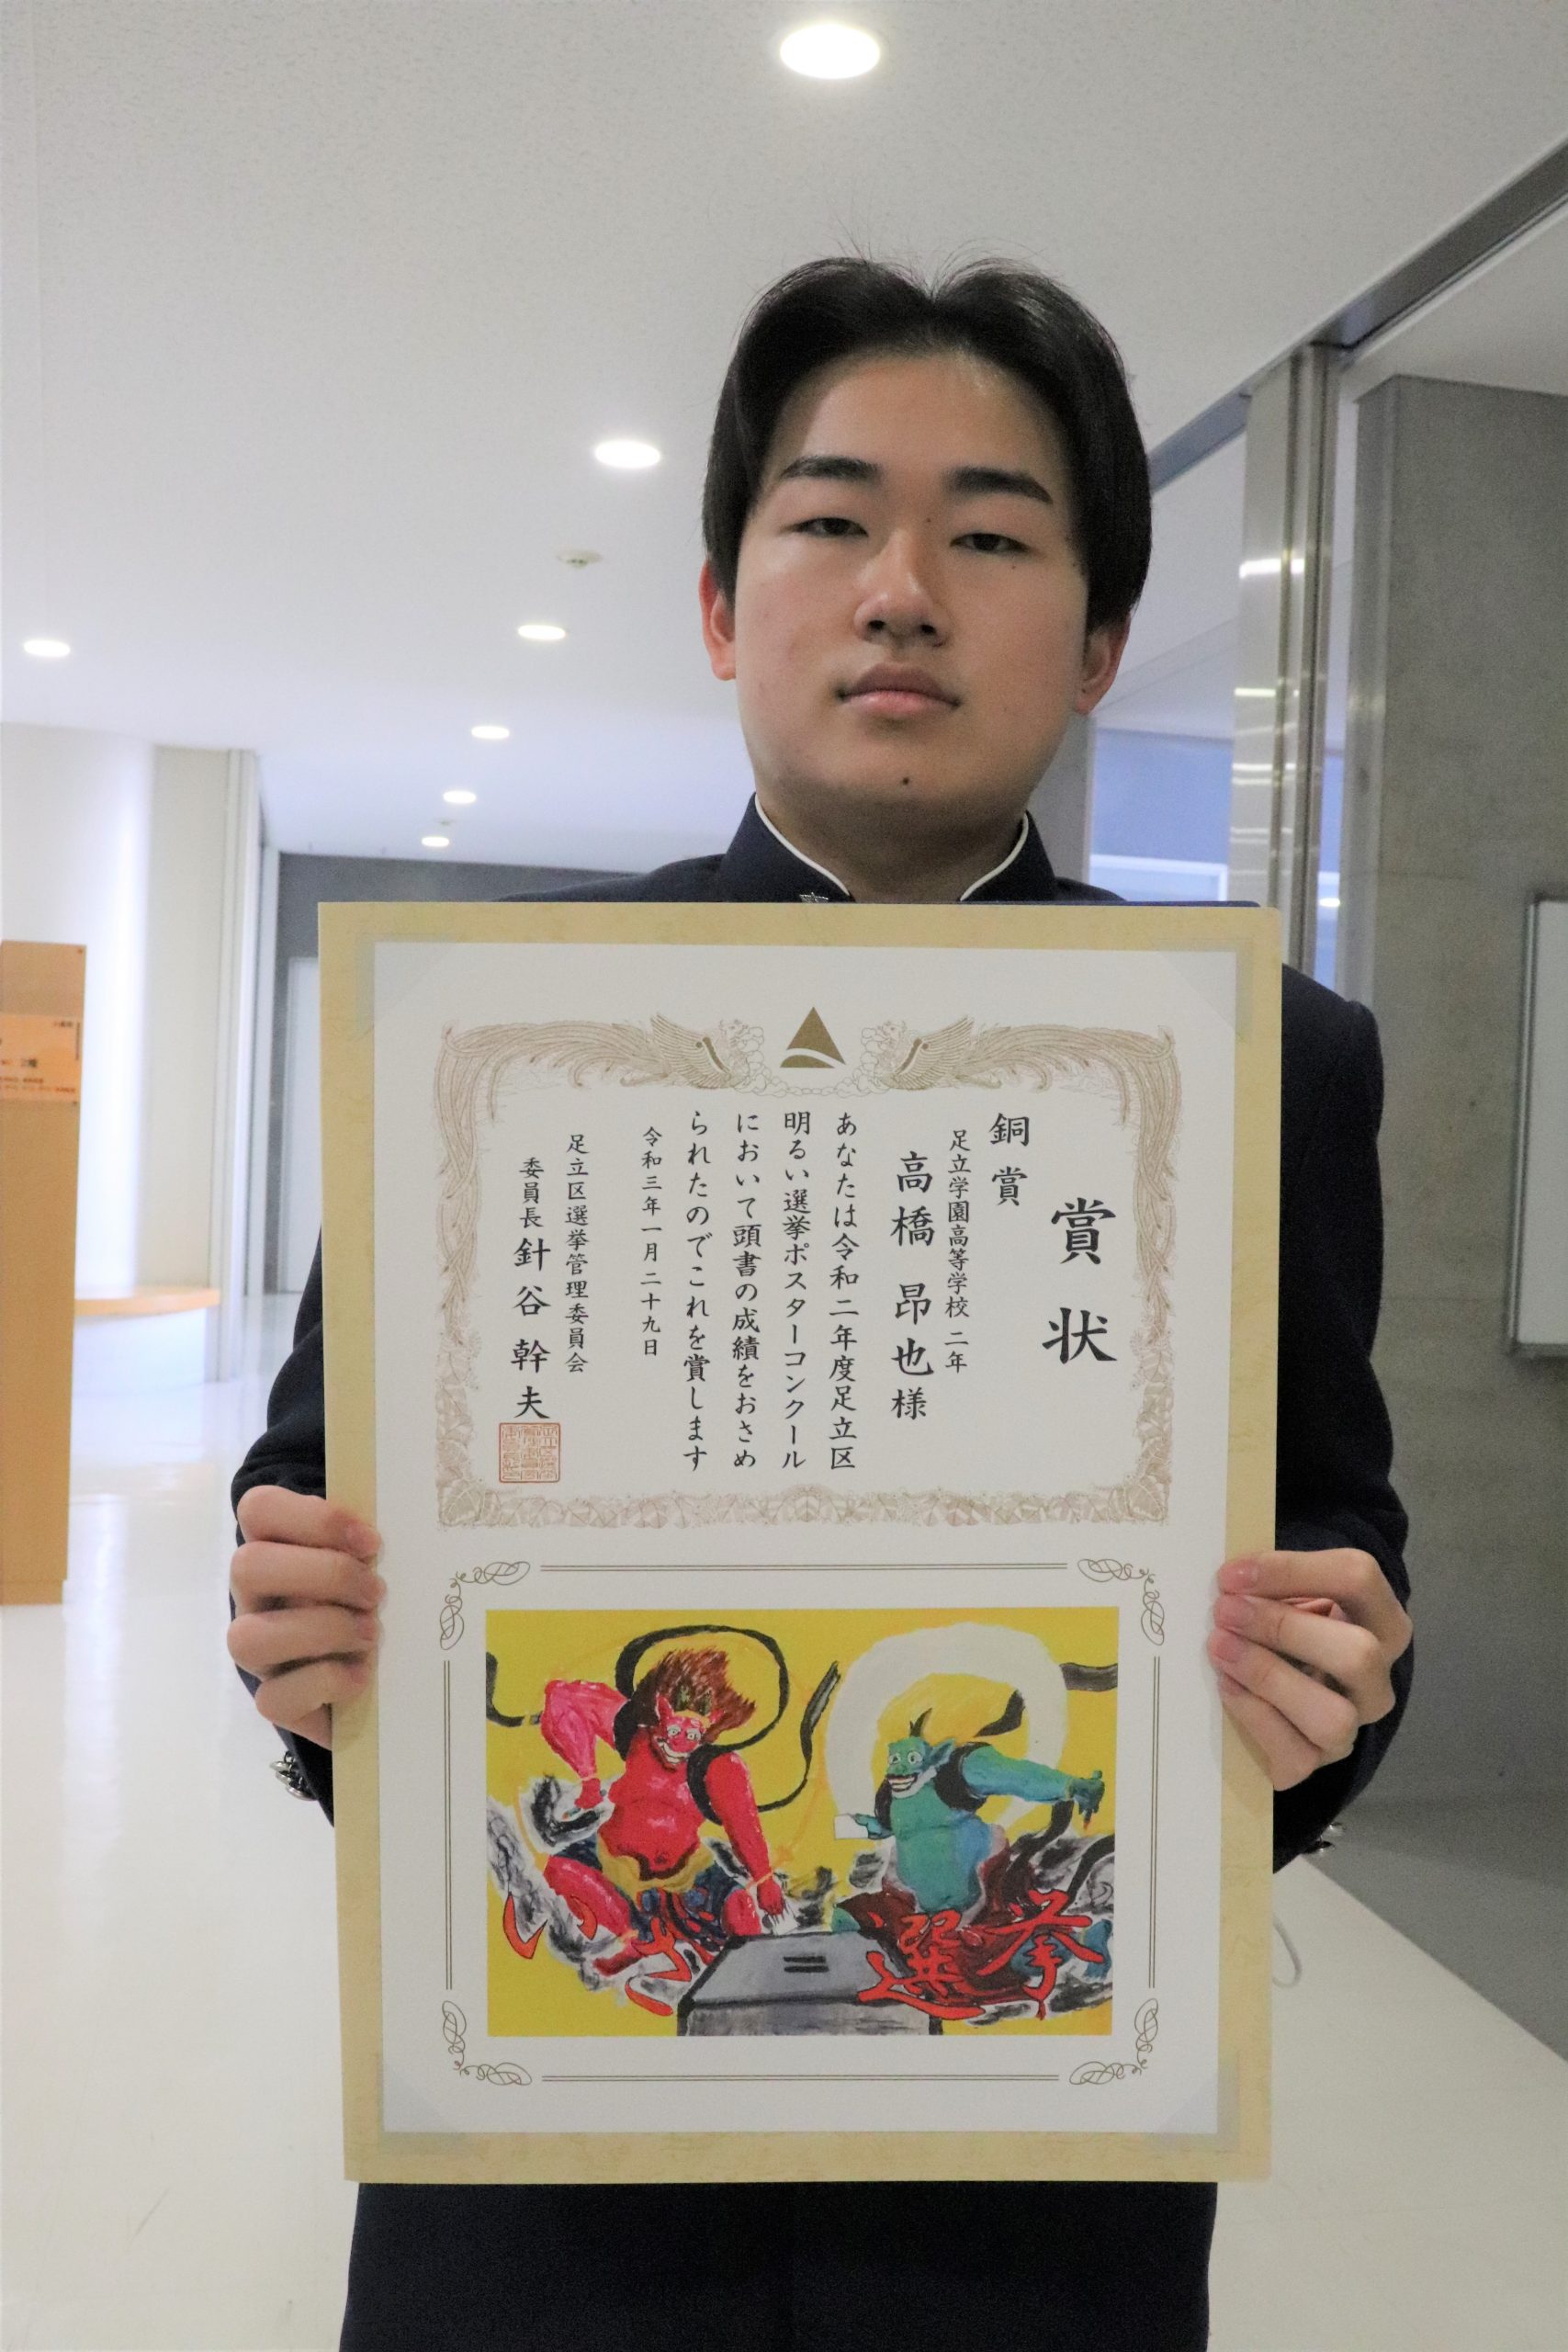 賞状
銅賞
足立学園高等学校 二年
高橋 昂也 様
あなたは令和二年度足立区
明るい選挙ポスターコンクール
において頭書の成績をおさめ
られたのでこれを賞します
令和三年一月二十九日
足立区選挙管理委員会
委員長 針谷幹夫
いざ 選挙